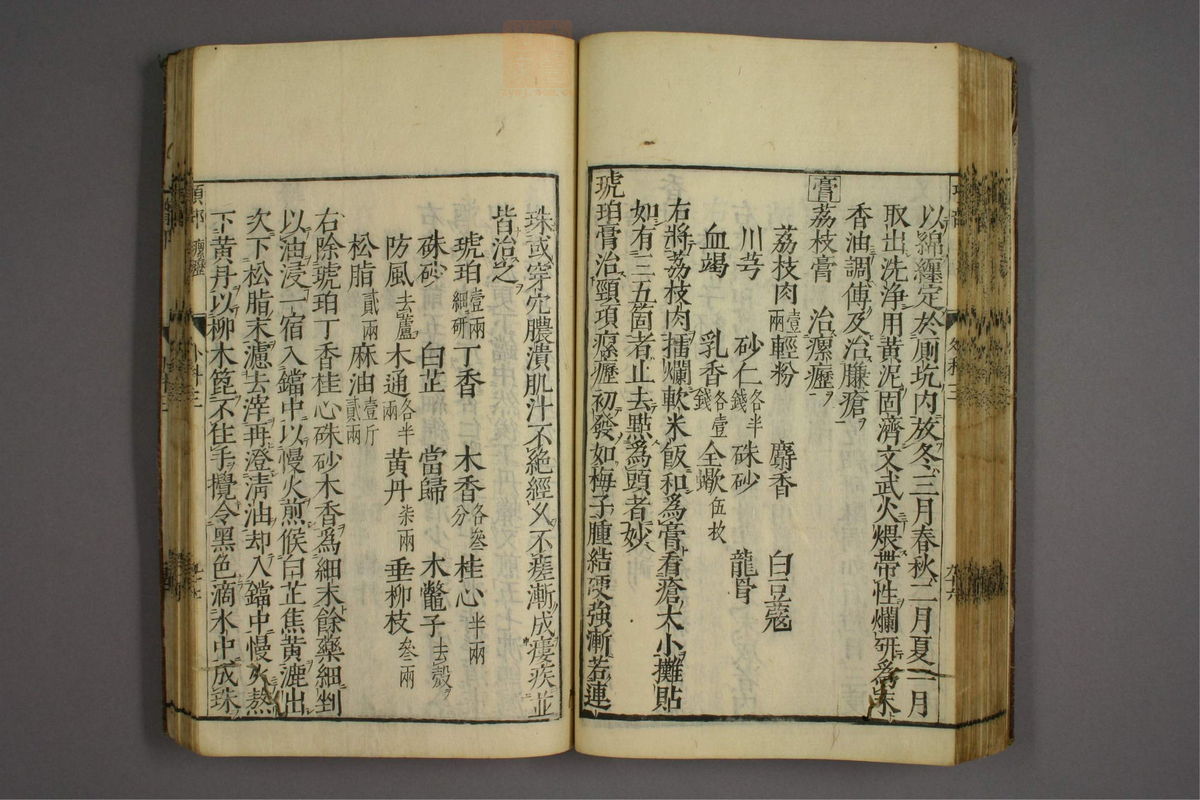 以綿纏定於厠坑內放冬三月春秋二月夏一月
取出洗浄用黃泥固濟文武火煨帶性爛研爲末
香油調傅及治臁瘡
膏 荔枝膏 治瘰癧
荔枝肉壹兩 輕粉 麝香 白豆蔻
川芎 砂仁各半錢 硃砂 龍骨
血竭 乳香各壹錢 全蠍伍枚
右將荔枝肉擂爛軟米飯和爲膏看瘡大小攤貼
如有三五箇者止去點爲頭者妙
琥珀膏治頸項瘰癧初發如梅子腫結硬強漸若連
珠或穿穴膿潰肌汁不絶經久不瘥漸成瘻疾並
皆治之
琥珀壹兩細研 丁香 木香各叄分 桂心半兩
硃砂 白芷 當歸 木鼈子去殼
防風去蘆 木通各半兩 黃丹柒兩 垂柳枝叄兩
松脂貳兩 麻油壹斤貳兩
右除琥珀丁香桂心硃砂木香爲細末餘藥細剉
以油浸一宿入鐺中以慢火煎候白芷焦黃漉出
次下松脂末濾去滓再澄清油却入鐺中慢火熬
下黃丹以柳木篦不住手攪令黑色滴水中成珠
項部 瘰癧
外科三
九十七
外科三
九十六